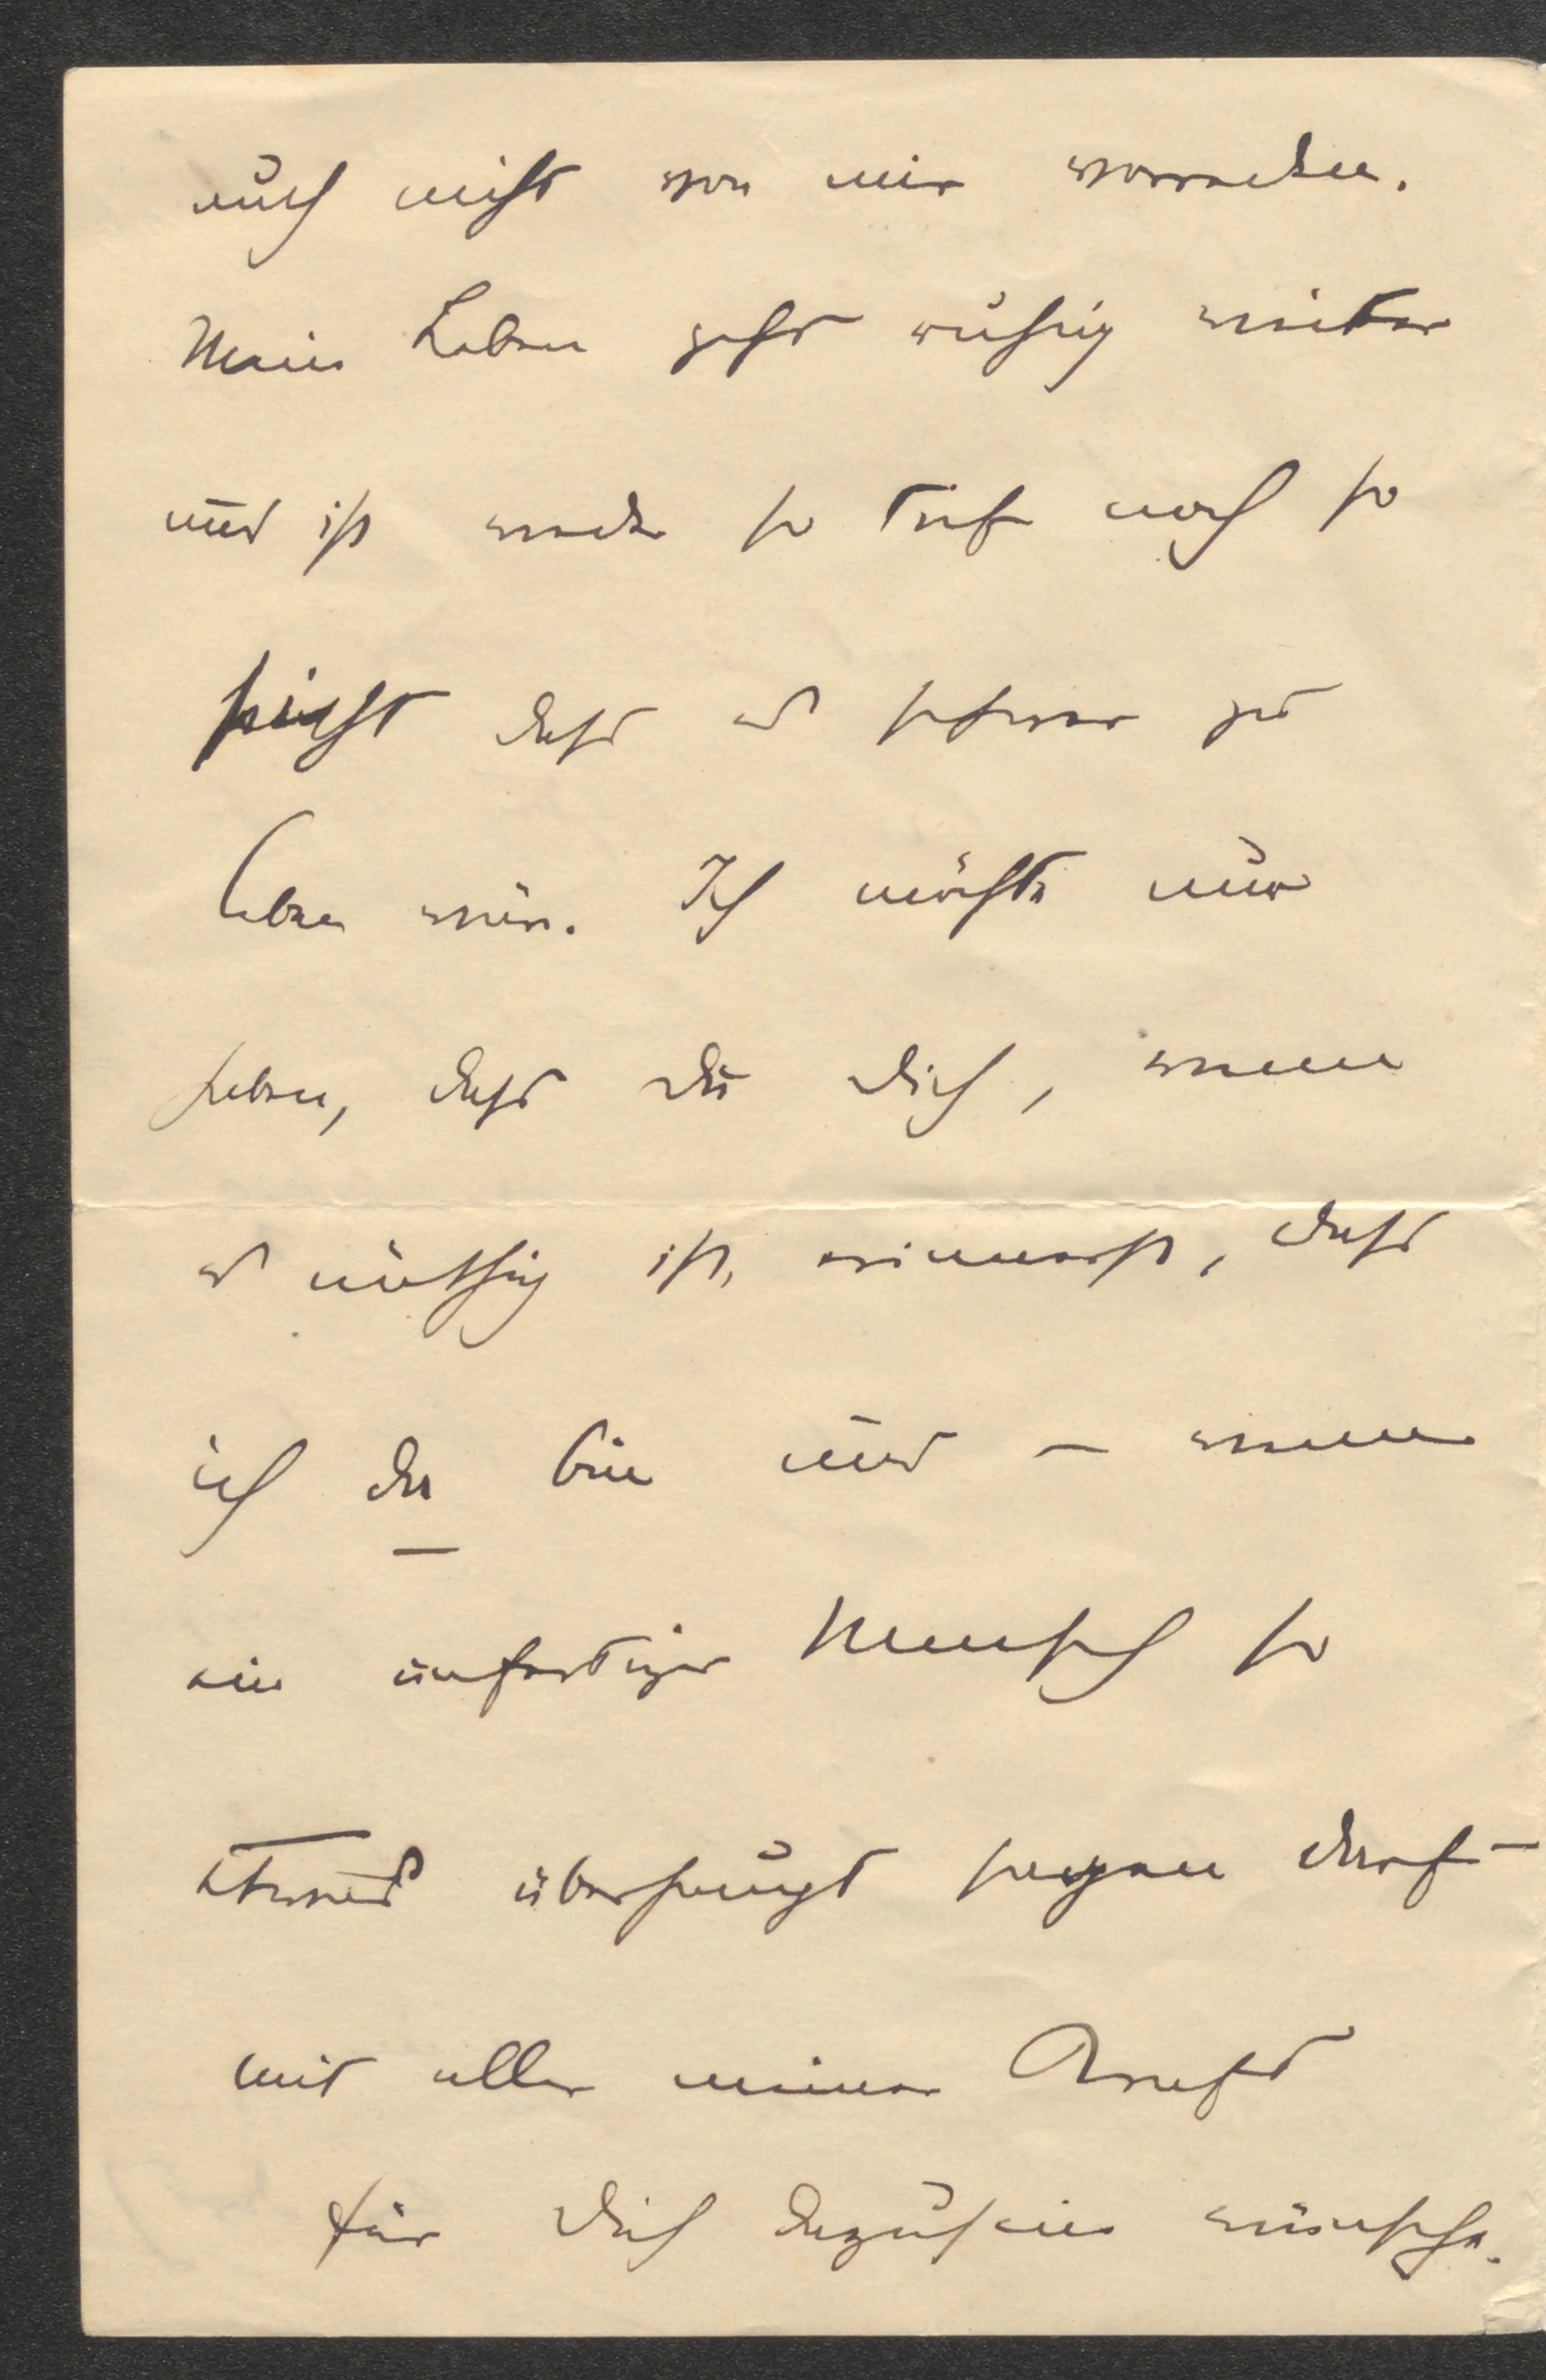 auch nicht von mir verraten.
Mein Leben geht ruhig weiter
und ist weder so tief noch so
seicht dass es schwer zu
leben wäre. Ich möchte nur
haben, dass du dich, wenn
es nöthig ist, erinnerst, dass
ich da bin und – wenn
ein unfertiger Mensch so
etwas überhaupt sagen darf –
mit aller meiner Kraft
für dich dazusein wünsche.